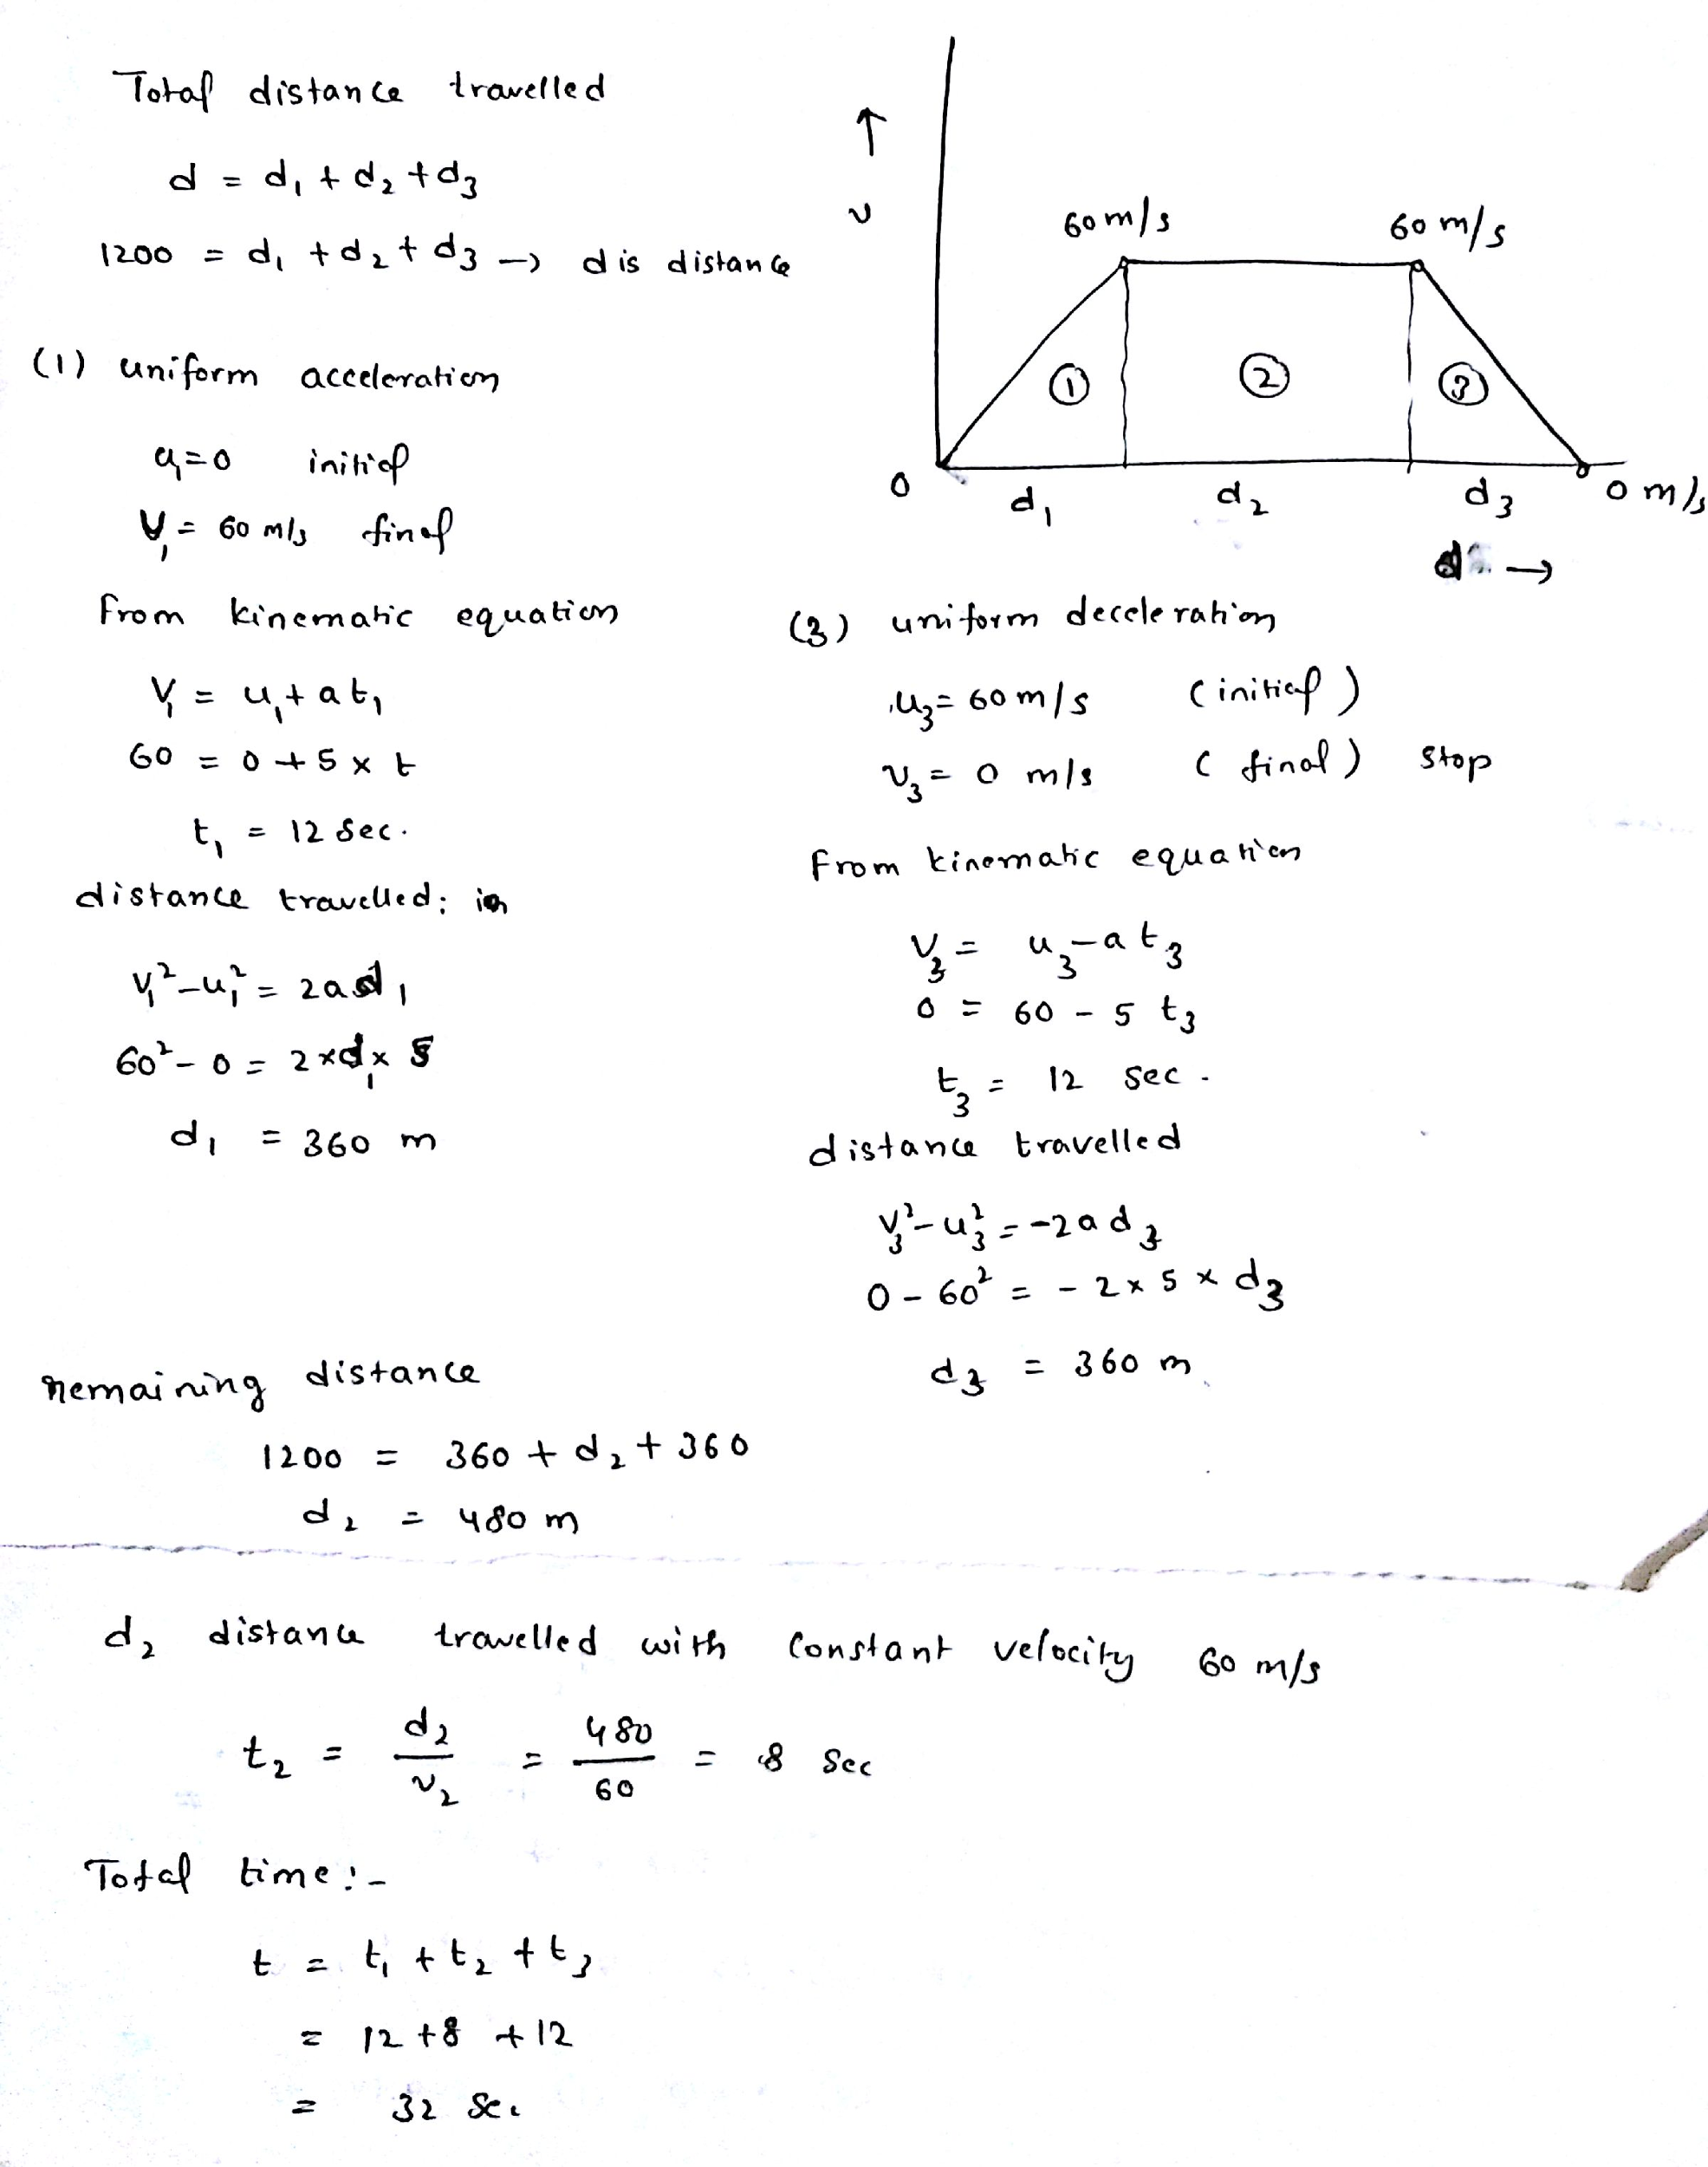 Total distance travelled
d = d₁ + d₂ + d₃
1200 = d₁ + d₂ + d₃ → d is distance
↑
v
60 m/s
60 m/s
①
②
③
0
d₁
d₂
d₃
0 m/s
d →
(1) uniform acceleration
u₁ = 0 initial
V₁ = 60 m/s final
From kinematic equation
V₁ = u₁ + at₁
60 = 0 + 5 × t
t₁ = 12 sec.
distance travelled; in
V₁² - u₁² = 2ad₁
60² - 0 = 2 × d₁ × 5
d₁ = 360 m
(3) uniform deceleration
u₃ = 60 m/s (initial)
v₃ = 0 m/s (final) stop
From kinematic equation
V₃ = u₃ - at₃
0 = 60 - 5 t₃
t₃ = 12 sec.
distance travelled
V₃² - u₃² = -2ad₃
0 - 60² = -2 × 5 × d₃
d₃ = 360 m
remaining distance
1200 = 360 + d₂ + 360
d₂ = 480 m
d₂ distance travelled with constant velocity 60 m/s
t₂ = d₂/v₂ = 480/60 = 8 sec
Total time:-
t = t₁ + t₂ + t₃
= 12 + 8 + 12
= 32 sec